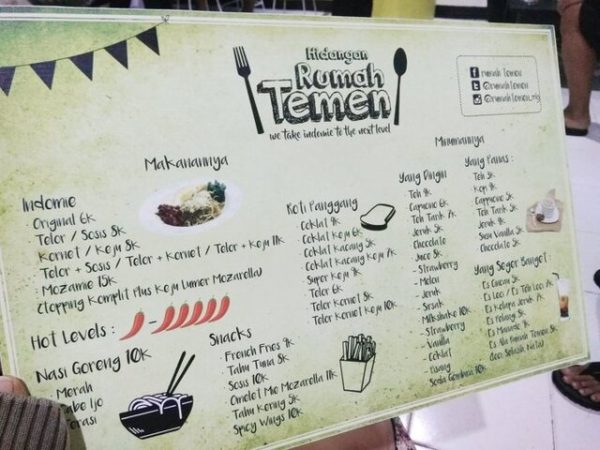 Hidangan
Rumah
Temen
we take indomie to the next level
rumah temen
@rumahtemen
Makanannya
Indomie
· Original 6k
· Telor / Sosis 8k
· Kornet / Keju 9k
· Telor + Sosis / Telor + Kornet / Telor + Keju 11k
· Mozamie 15k
(Topping Komplit Plus Keju Lumer Mozarella)
Hot Levels :
Nasi Goreng 10k
· Merah
Cabe Ijo
Terasi
Snacks
· French Fries 9k
· Tahu Tuna 5k
· Sosis 10k
· Omelet Mie Mozarella 11k
· Tahu Kering 5k
· Spicy Wings 10k
Roti Panggang
· Coklat
· Coklat Keju
· Coklat Kacang
· Coklat Kacang Keju
· Super Keju
· Telor 6k
· Telor Kornet
· Telor Kornet Keju 10k
Minumannya
Yang Dingin
· Teh
· Capucino 6k
· Teh Tarik
· Jeruk
· Chocolate
Juice
· Strawberry
· Melon
· Jeruk
· Sirsak
Milkshake 10k
· Strawberry
· Vanilla
· Coklat
Pisang
Soda Gembira 10k
Yang Panas :
· Teh
· Kopi
· Capucino
· Teh Tarik
· Jeruk
· Susu Vanilla
· Chocolate
Yang Seger Banget :
· Es Cincau
· Es Leo / Es Teh Leo
· Es Kelapa Jeruk
· Es Manado
· Es Ala Rumah Temen